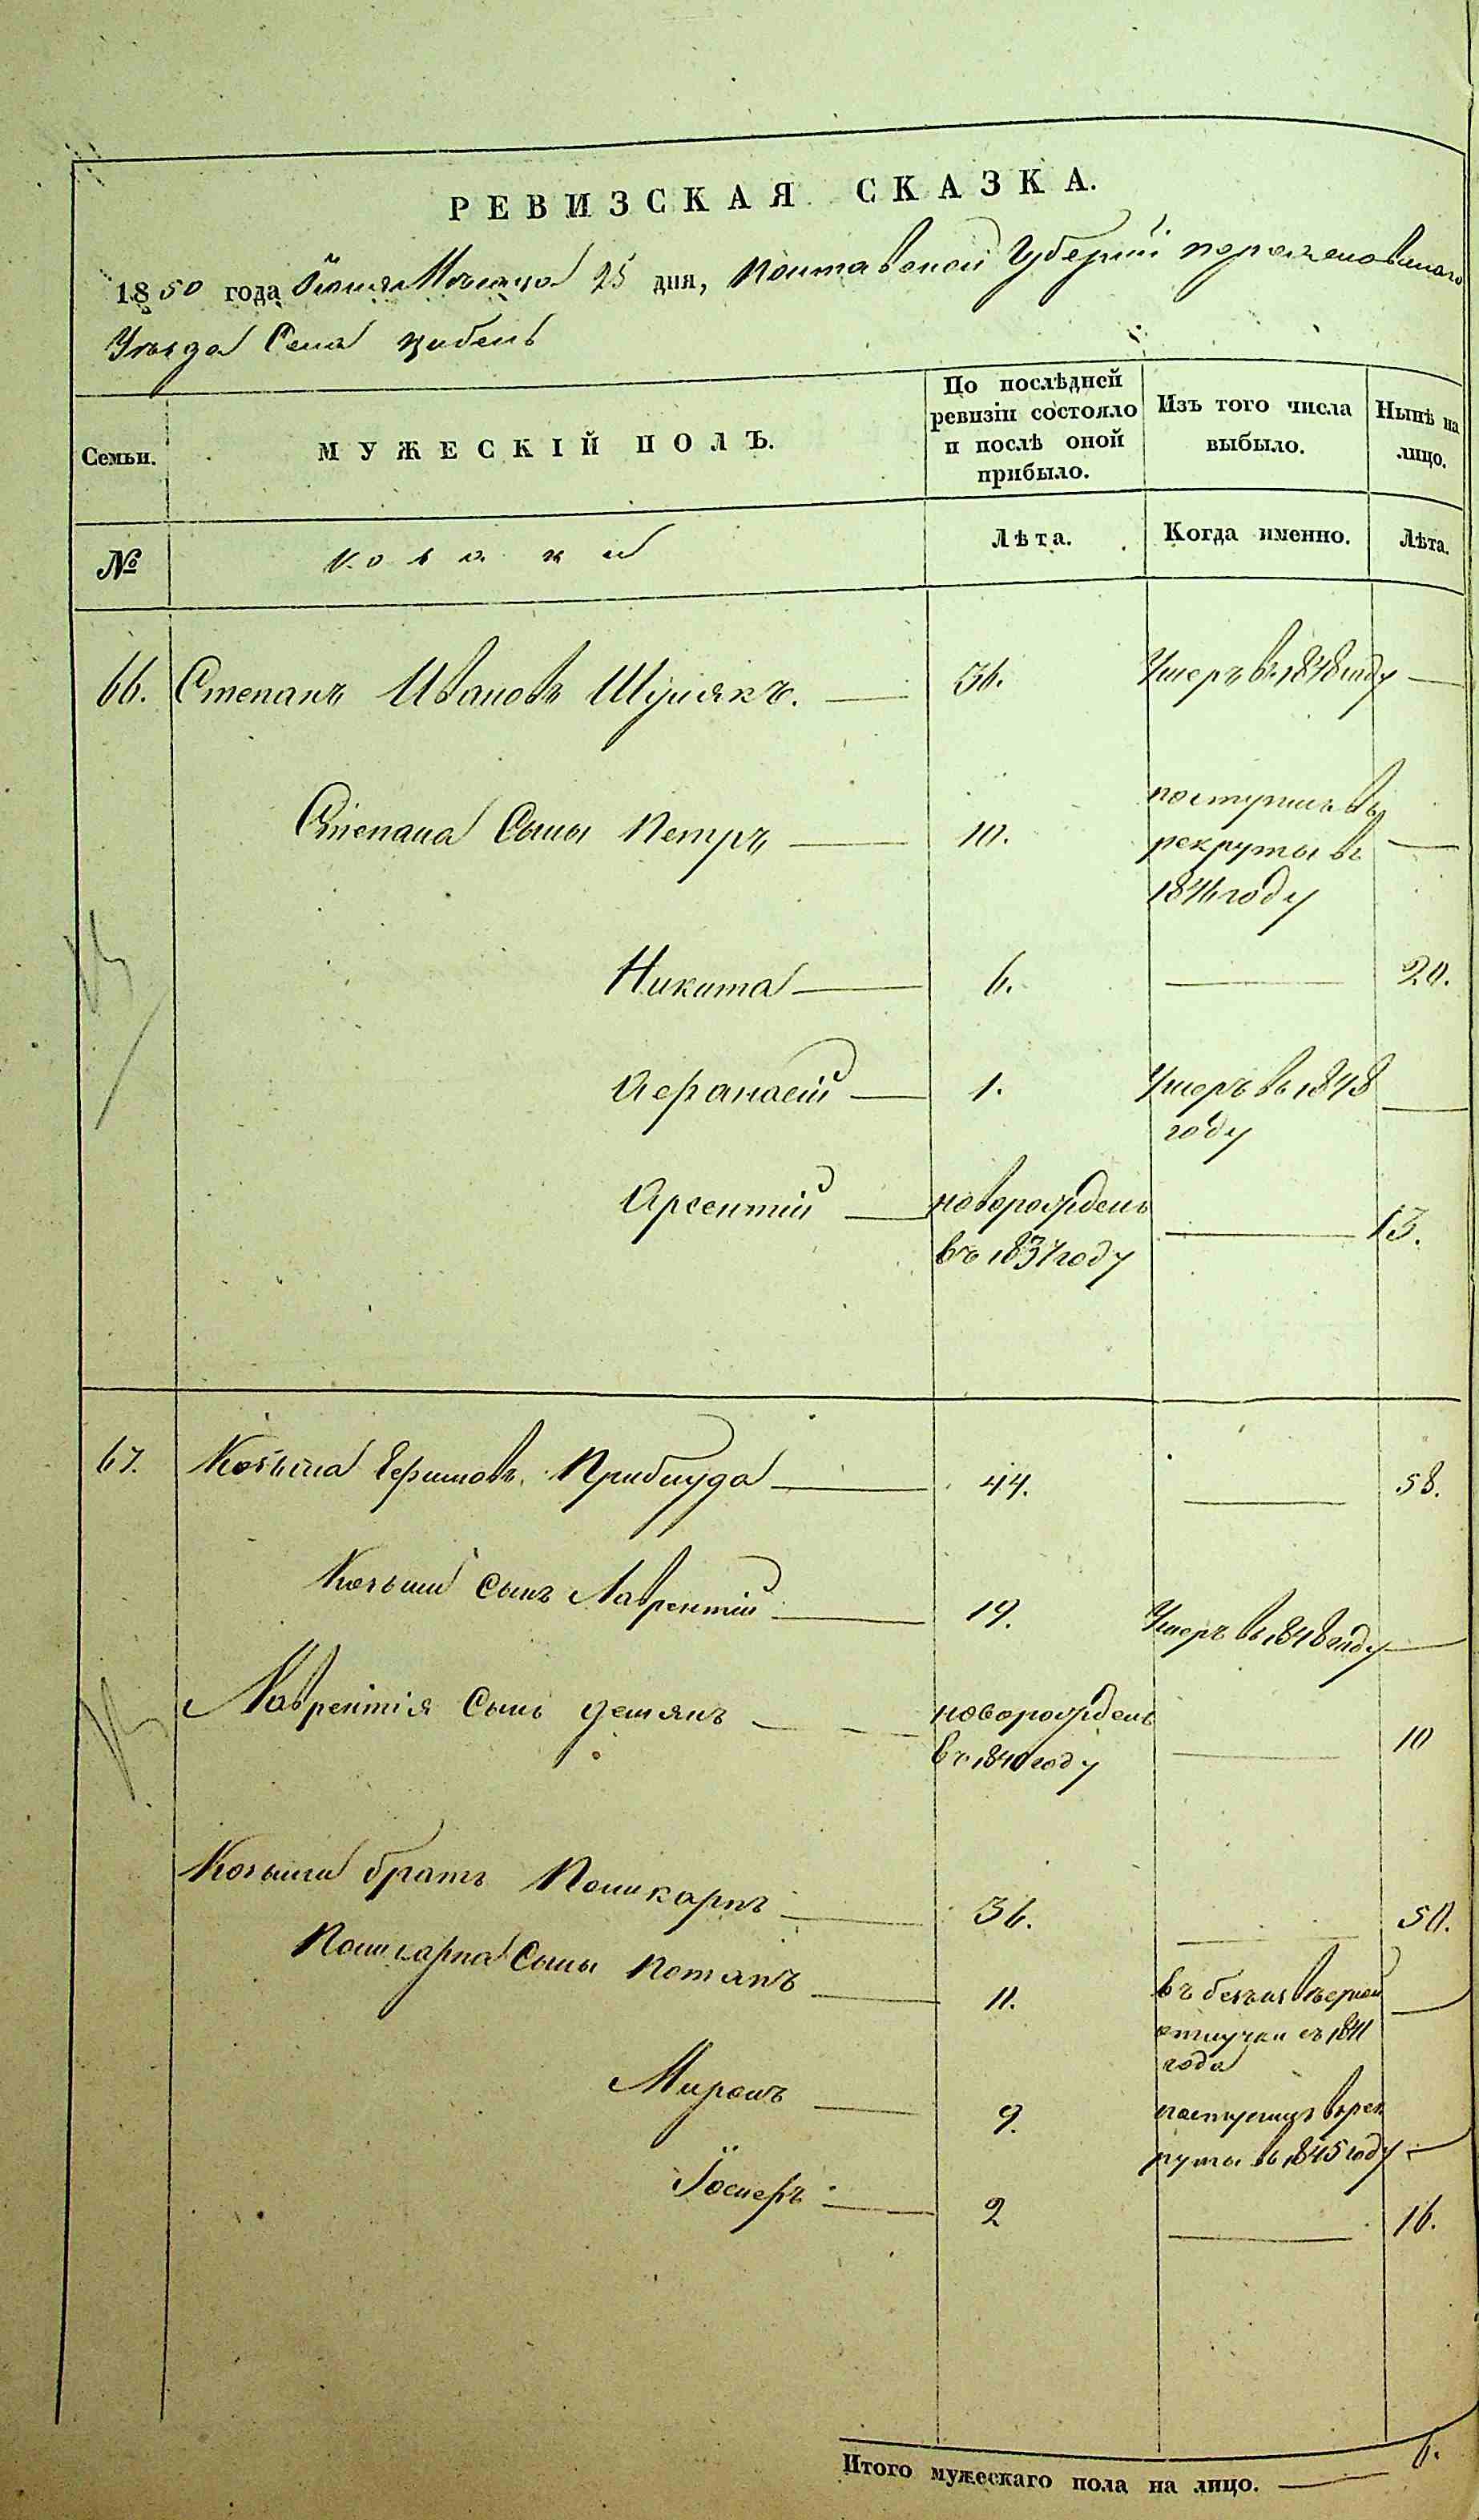 РЕВИЗСКАЯ СКАЗКА.
1850 года Июня Месяца 25 дня, Полтавской Губерніи Переяславскаго
Уезда Села Цибель
Семьи.
МУЖЕСКІЙ ПОЛЪ.
По послѣдней ревизіи состояло и послѣ оной прибыло.
Изъ того числа выбыло.
Нынѣ на лицо.
№
Козаки
Лѣта.
Когда именно.
Лѣта.
66. Степанъ Ивановъ Шулякъ. 36. Умеръ въ 1848 году
Степана Сыны Петръ 10. поступилъ въ
рекруты въ
1846 году
Никита 6. 20.
Афанасій 1. Умеръ въ 1848
году
Арсентій новорожденъ 13.
въ 1837 году
67. Козьма Ефимовъ Приблуда 44. 58.
Козьмы Сынъ Лаврентій 19. Умеръ въ 1848 году
Лаврентія Сынъ Демянъ новорожденъ 10
въ 1840 году
Козьмы братъ Поликарпъ 36. 50.
Поликарпа Сыны Потапъ 11. въ безъизвѣсной
отлучки съ 1841
года
Миронъ 9. поступилъ в рек
руты въ 1845 году
Іосифъ 2 16.
Итого мужескаго пола на лицо. 6.